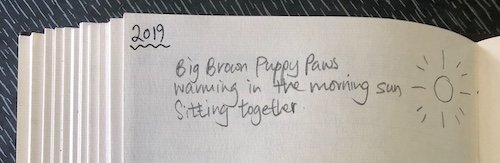 2019
Big Brown Puppy Paws
warming in the morning sun
Sitting together.